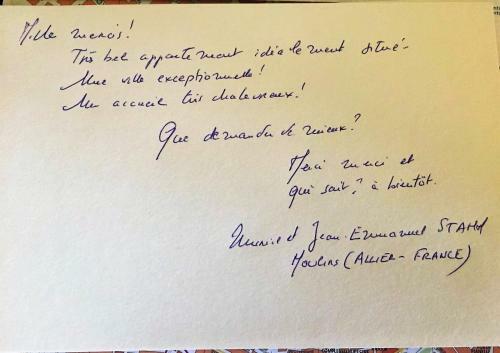 Mille mercis!
Très bel appartement idéalement situé-
Une ville exceptionnelle!
Un accueil très chaleureux!
Que demander de mieux?
Merci merci et
qui sait? à bientôt.
Muriel et Jean-Emmanuel STAHL
MOULINS (ALLIER-FRANCE)